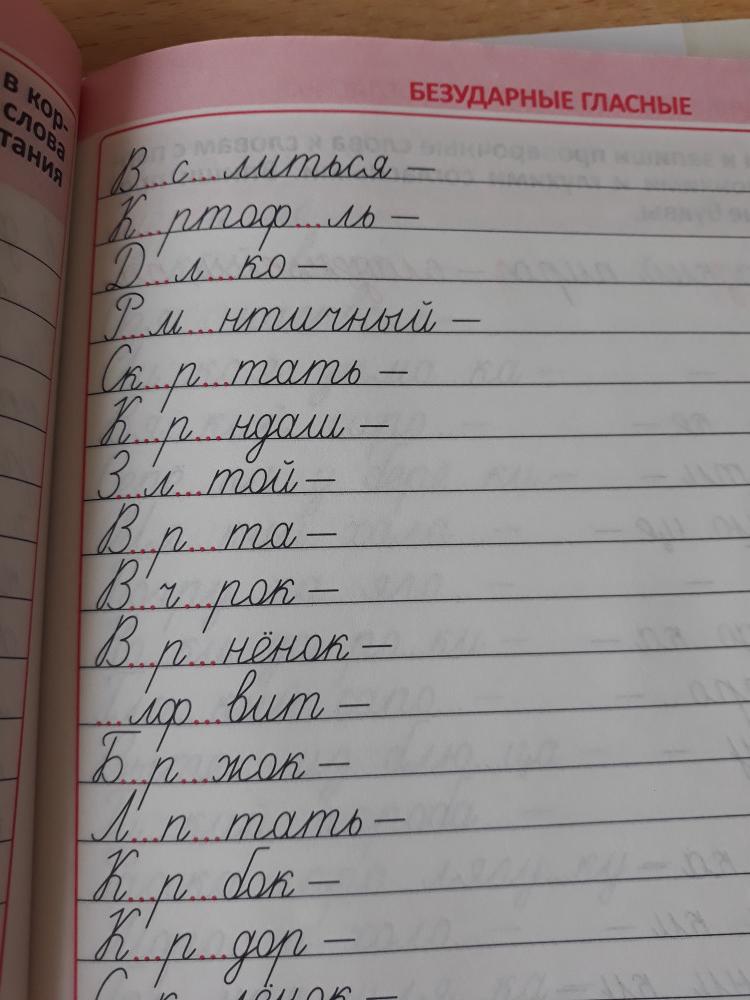 в кор-
слова
тания
БЕЗУДАРНЫЕ ГЛАСНЫЕ
В...с...литься –
К...ртоф...ль –
Д...л...ко –
Р...м...нтичный –
Ск...р...тать –
К...р...ндаш –
З...л...той –
В...р...та –
В...ч...рок –
В...р...нёнок –
...лф...вит –
Б...р...жок –
Л...п...тать –
К...р...бок –
К...р...дор –